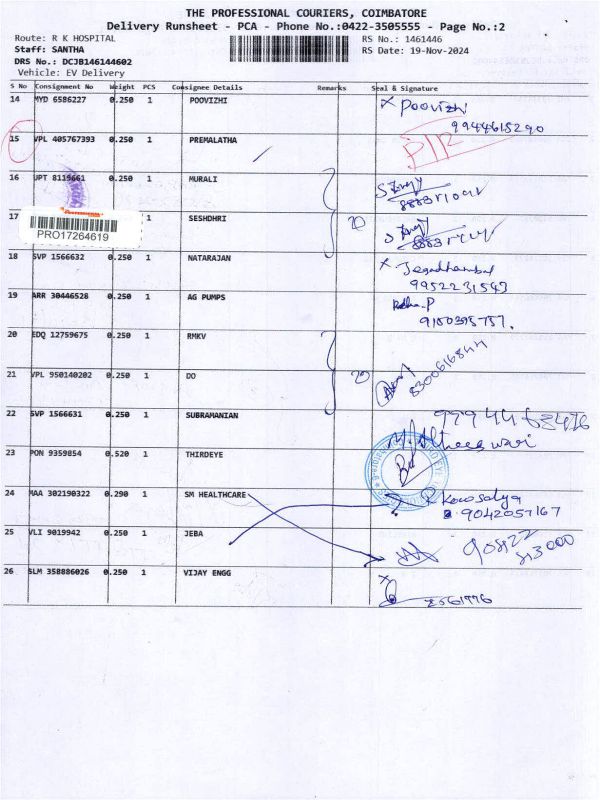 THE PROFESSIONAL COURIERS, COIMBATORE
Delivery Runsheet - PCA - Phone No.:0422-3505555 - Page No.:2
Route: R K HOSPITAL
RS No.: 1461446
Staff: SANTHA
RS Date: 19-Nov-2024
DRS No.: DCJB146144602
Vehicle: EV Delivery
S No Consignment No Weight PCS Consignee Details Remarks Seal & Signature
14 MYD 6586227 0.250 1 POOVIZHI x Poovizhi
9944615290
15 VPL 405767393 0.250 1 PREMALATHA
16 UPT 8115661 0.250 1 MURALI
17 1 SESHDHRI 20
PRO17264619
18 SVP 1566632 0.250 1 NATARAJAN x Jegadhambal
9952231543
19 ARR 30446528 0.250 1 AG PUMPS
9180395757.
20 EDQ 12759675 0.250 1 RMKV
21 VPL 950140202 0.250 1 DO 20
8300616844
22 SVP 1566631 0.250 1 SUBRAMANIAN
23 PON 9359854 0.520 1 THIRDEYE
24 MAA 302190322 0.290 1 SM HEALTHCARE R Kowsalya
9042057167
25 VLI 9019942 0.250 1 JEBA
26 SLM 358886026 0.250 1 VIJAY ENGG x